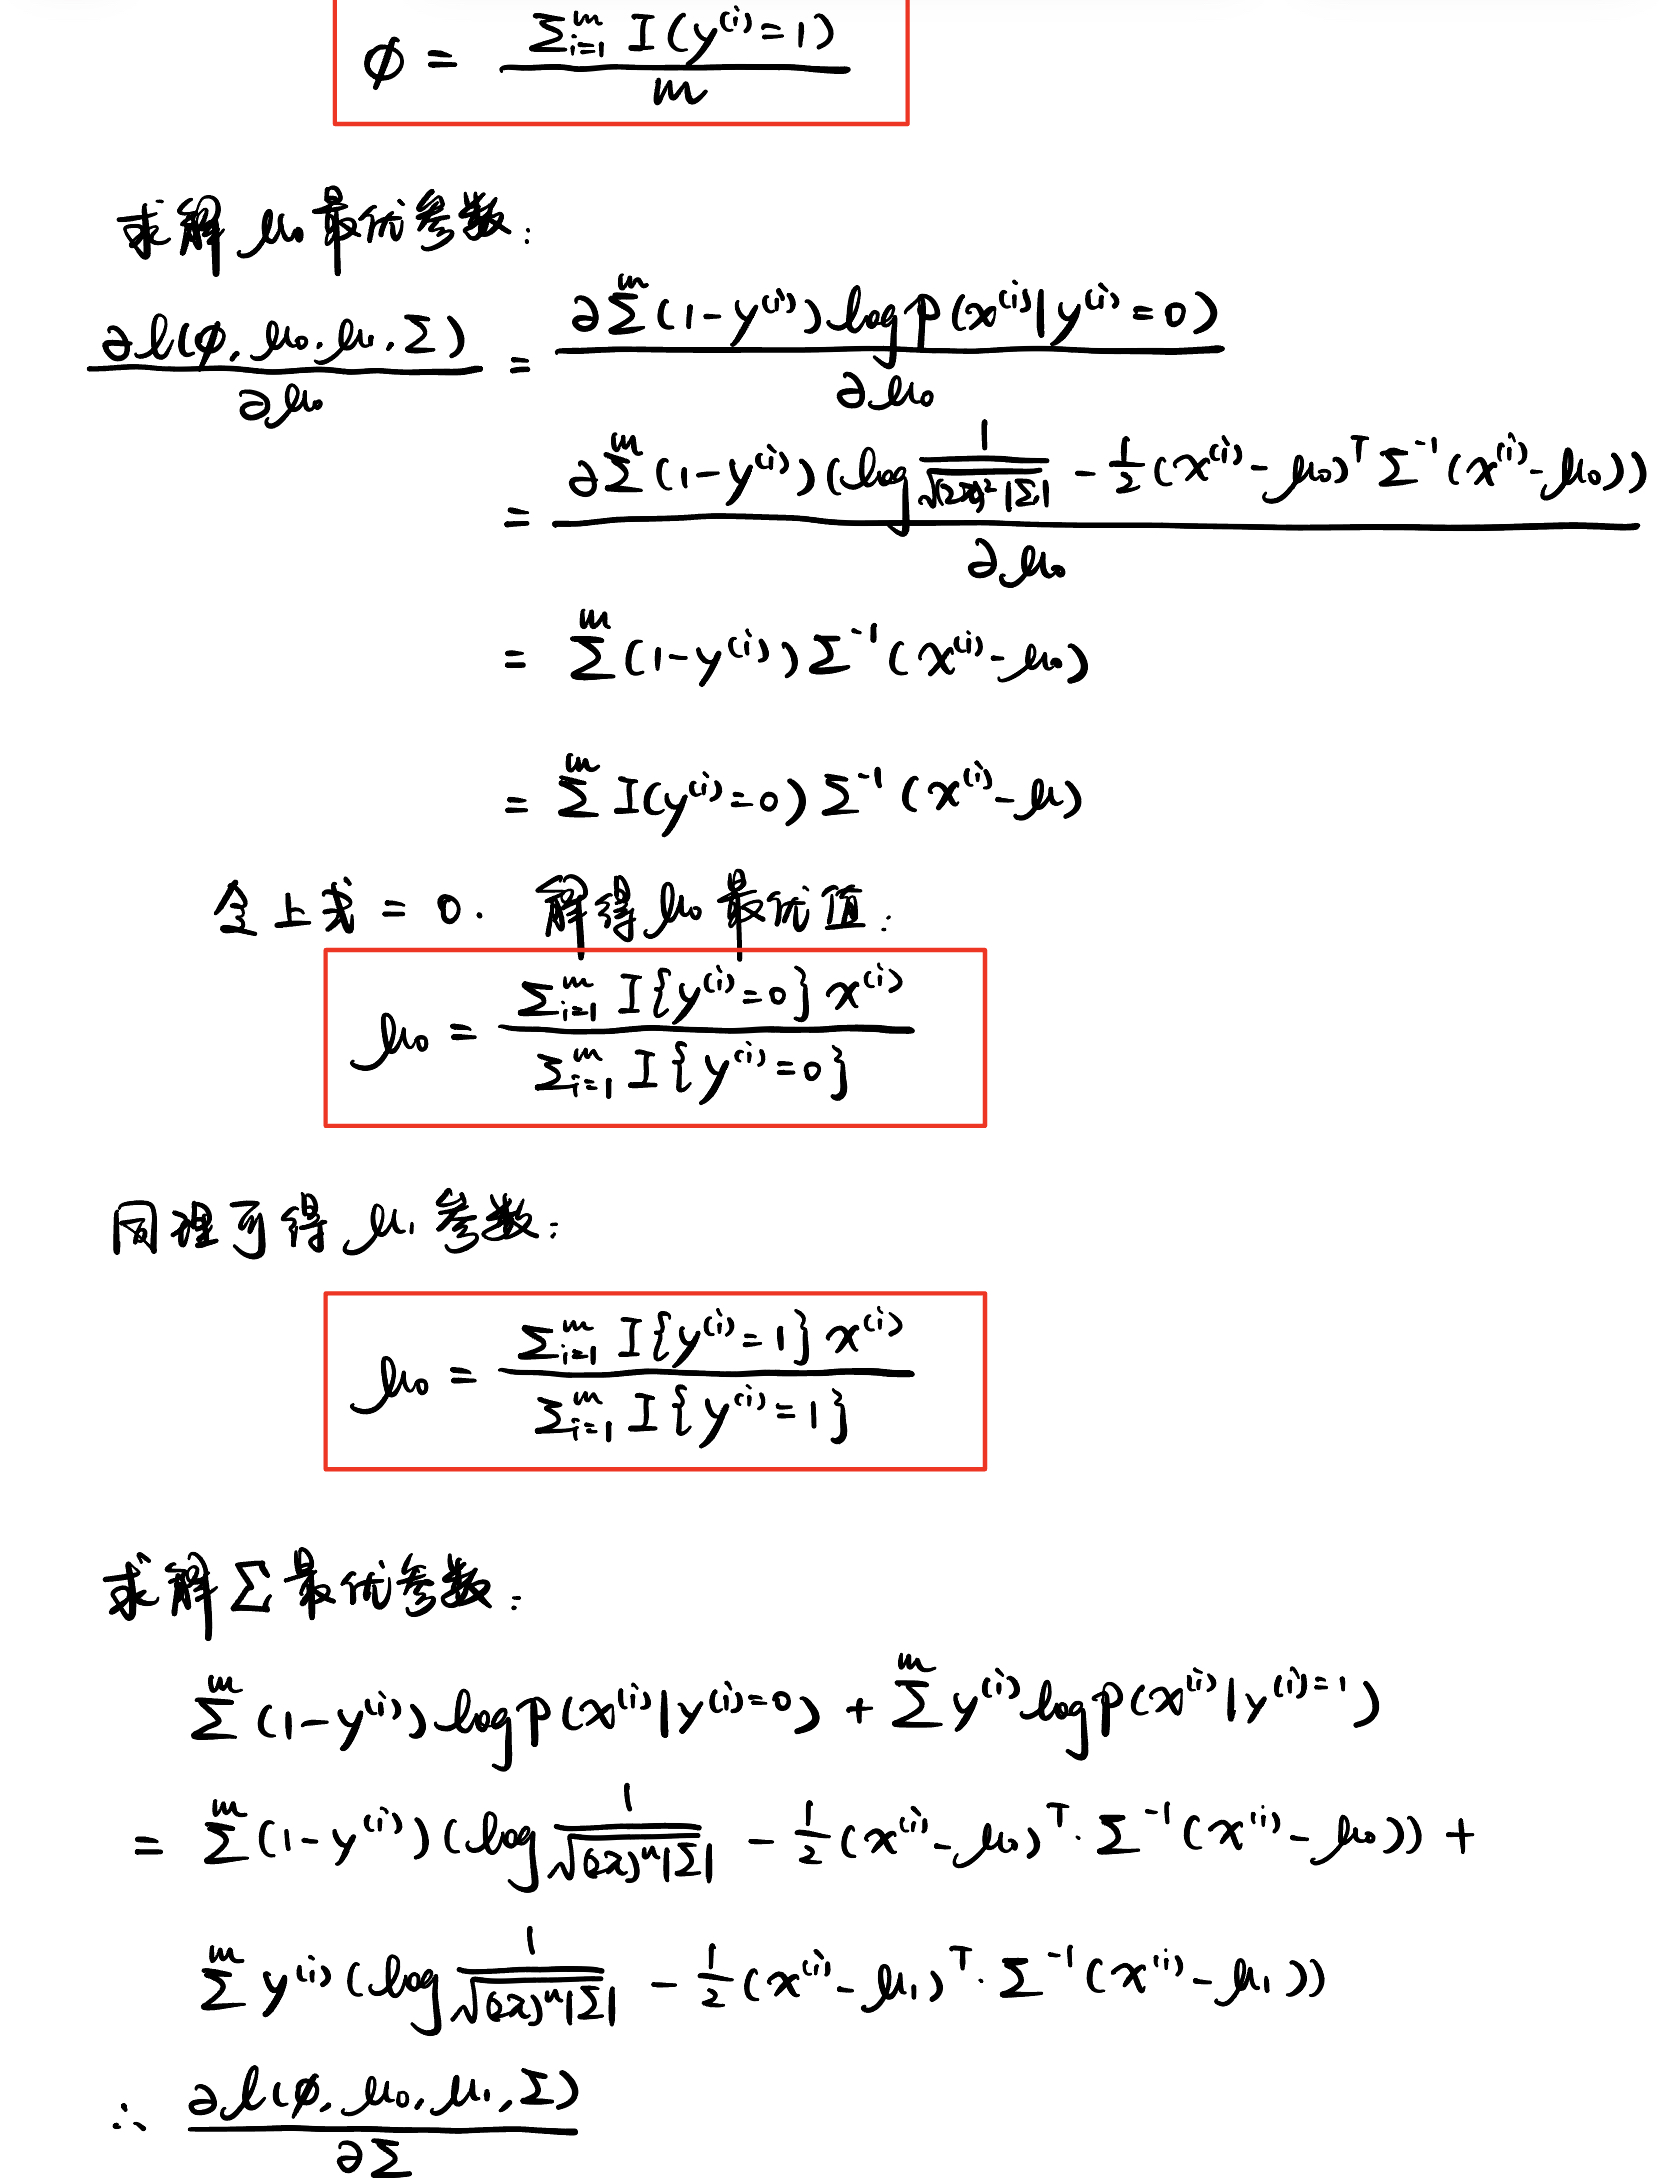 ϕ = Σᵢ₌₁ᵐ I(y⁽ⁱ⁾=1) / m
求解 μ₀ 最优参数:
∂l(ϕ, μ₀, μ₁, Σ) / ∂μ₀ = ∂Σᵐ(1-y⁽ⁱ⁾)log p(x⁽ⁱ⁾|y⁽ⁱ⁾=0) / ∂μ₀
= ∂Σᵐ(1-y⁽ⁱ⁾)(log 1/√((2π)²|Σ|) - ½(x⁽ⁱ⁾-μ₀)ᵀΣ⁻¹(x⁽ⁱ⁾-μ₀)) / ∂μ₀
= Σᵐ(1-y⁽ⁱ⁾)Σ⁻¹(x⁽ⁱ⁾-μ₀)
= Σᵐ I(y⁽ⁱ⁾=0)Σ⁻¹(x⁽ⁱ⁾-μ)
令上式 = 0. 解得 μ₀ 最优值:
μ₀ = Σᵢ₌₁ᵐ I{y⁽ⁱ⁾=0} x⁽ⁱ⁾ / Σᵢ₌₁ᵐ I{y⁽ⁱ⁾=0}
同理可得 μ₁ 参数:
μ₀ = Σᵢ₌₁ᵐ I{y⁽ⁱ⁾=1} x⁽ⁱ⁾ / Σᵢ₌₁ᵐ I{y⁽ⁱ⁾=1}
求解 Σ 最优参数:
Σᵐ(1-y⁽ⁱ⁾)log p(x⁽ⁱ⁾|y⁽ⁱ⁾=0) + Σᵐ y⁽ⁱ⁾ log p(x⁽ⁱ⁾|y⁽ⁱ⁾=1)
= Σᵐ(1-y⁽ⁱ⁾)(log 1/√((2π)ⁿ|Σ|) - ½(x⁽ⁱ⁾-μ₀)ᵀ·Σ⁻¹(x⁽ⁱ⁾-μ₀)) +
Σᵐ y⁽ⁱ⁾(log 1/√((2π)ⁿ|Σ|) - ½(x⁽ⁱ⁾-μ₁)ᵀ·Σ⁻¹(x⁽ⁱ⁾-μ₁))
∴ ∂l(ϕ, μ₀, μ₁, Σ) / ∂Σ